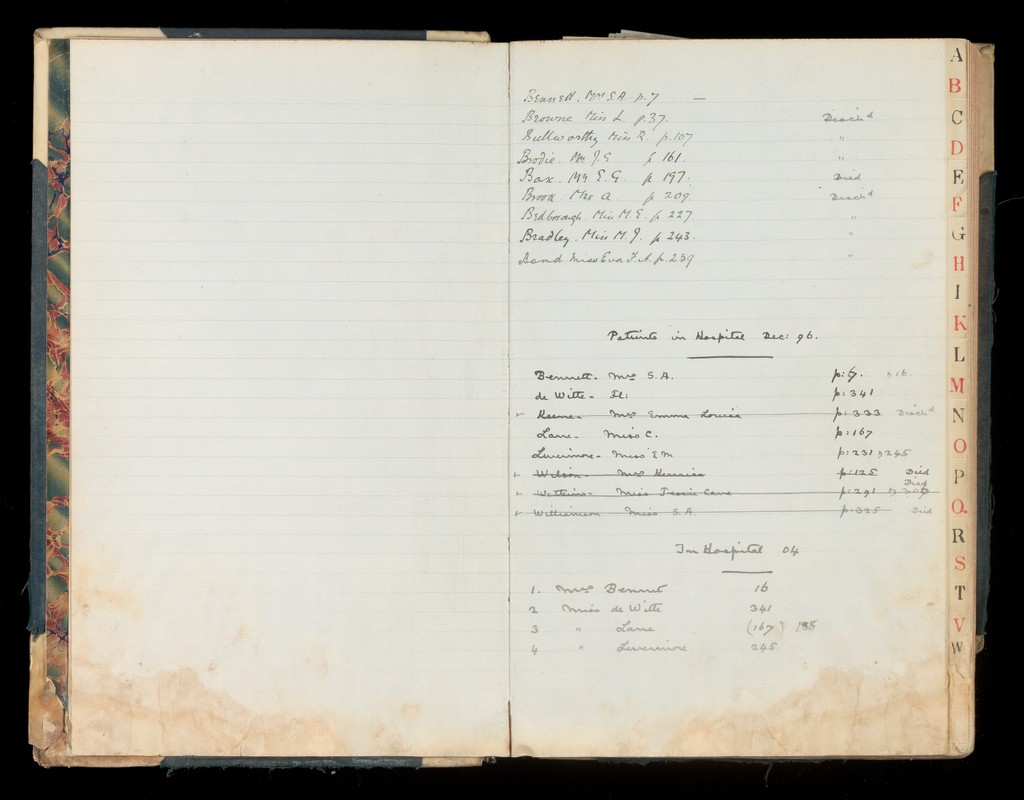 Bennett. Mrs S.A. p. 7 —
Browne Miss L. p. 37. Disch'd
Bullworthy Miss R. p. 107 "
Brodie. Mr J.G. p 161. "
Box. Mrs E.G. p. 197. Died
Brook Mrs A p 209. Disch'd
Bedborough. Miss M.E. p. 227 "
Bradley. Miss M.J. p 243. "
Bond Miss Eva F.A. p. 259 "
Patients in Hospital Dec: 96.
Bennett. Mrs S.A. p: 7. 16.
de Witte - Fl: p: 341
Keene - Mrs Emma Louisa p: 333 Disch'd
Lane - Miss C. p: 167
Livermore - Miss E M p: 231 245
Wilson - Mrs p: 125 Died
Watkins - Miss Jessie Cave p: 291 Died
Williamson Miss S.A. p: 325 Died
In Hospital 04
1. Mrs Bennet 16
2 Miss de Witte 341
3 " Lane (167) 185
4 " Livermore 245
A
B
C
D
E
F
G
H
I
K
L
M
N
O
P
Q.
R
S
T
V
W